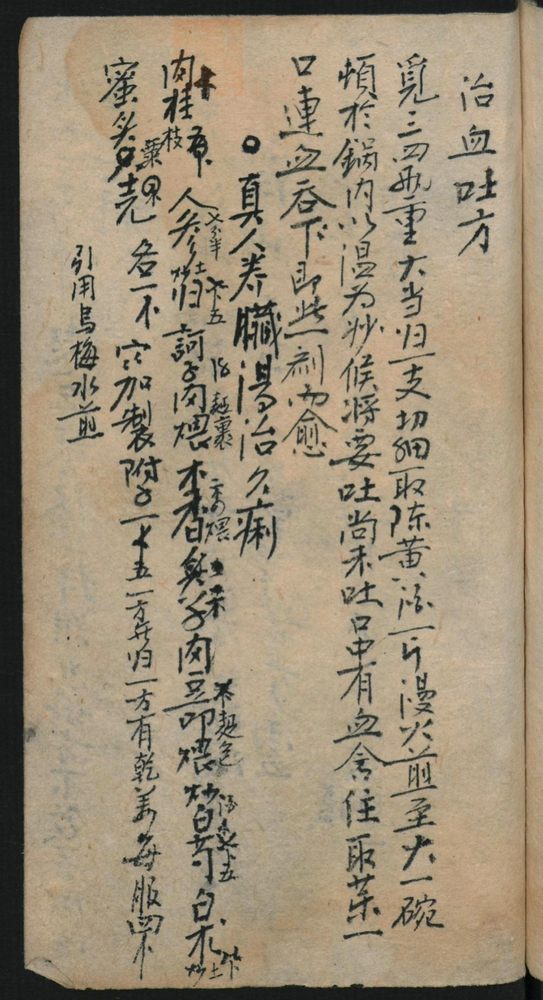 治血吐方
覓三四兩重大当归一支切細取陈黄酒一斤慢火煎至大一碗
頓於鍋内以温为妙候将要吐尚未吐口中有血含住取藥一
口連血吞下即此一剂而愈
真人养臓湯治久痢
肉桂 人参 归 訶子肉煨 木香 肉豆叩煨 炒白芍 白朮
枝 土炒 麵裹 煨 麵包 土炒
蜜炙壳 各一 加製附子一 五一方無归一方有乾姜每服四
粟
引用烏梅水煎